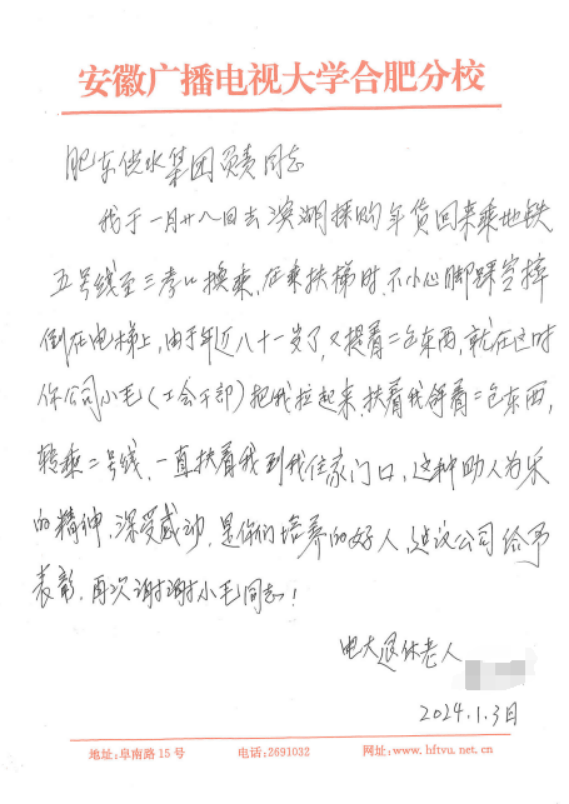 安徽广播电视大学合肥分校
肥东供水集团负责同志
我于一月廿八日去滨湖采购年货回来乘地铁
五号线至三孝口换乘,在乘扶梯时,不小心脚踩空摔
倒在电梯上,由于年近八十一岁了,又提着二包东西,就在这时
你公司小毛(工会干部)把我拉起来,扶着我领着二包东西,
转乘二号线,一直扶着我到我住家门口,这种助人为乐
的精神,深受感动,是你们培养的好人,建议公司给予
表彰,再次谢谢小毛同志!
电大退休老人
2024.1.3日
地址:阜南路15号 电话:2691032 网址:www.hftvu.net.cn